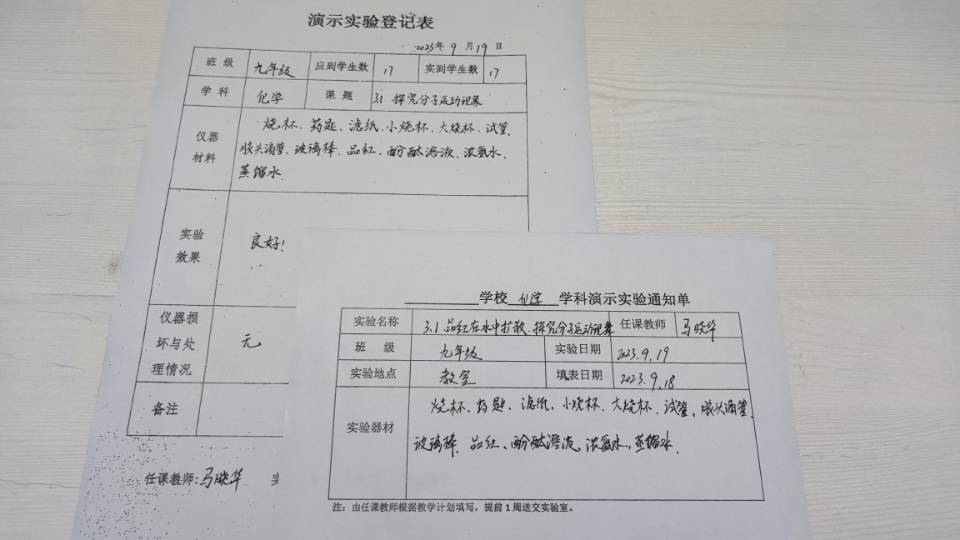 演示实验登记表
2023年9月19日
班级 九年级 应到学生数 17 实到学生数 17
学科 化学 课题 3.1 探究分子运动现象
仪器材料 烧杯、药匙、滤纸、小烧杯、大烧杯、试管、
胶头滴管、玻璃棒、品红、酚酞溶液、浓氨水、
蒸馏水
实验效果 良好!
仪器损坏与处理情况 无
备注
任课教师:马晓华
学校 化学 学科演示实验通知单
实验名称 3.1品红在水中扩散、探究分子运动现象 任课教师 马晓华
班级 九年级 实验日期 2023.9.19
实验地点 教室 填表日期 2023.9.18
实验器材 烧杯、药匙、滤纸、小烧杯、大烧杯、试管、胶头滴管、
玻璃棒、品红、酚酞溶液、浓氨水、蒸馏水.
注:由任课教师根据教学计划填写,提前1周送交实验室。